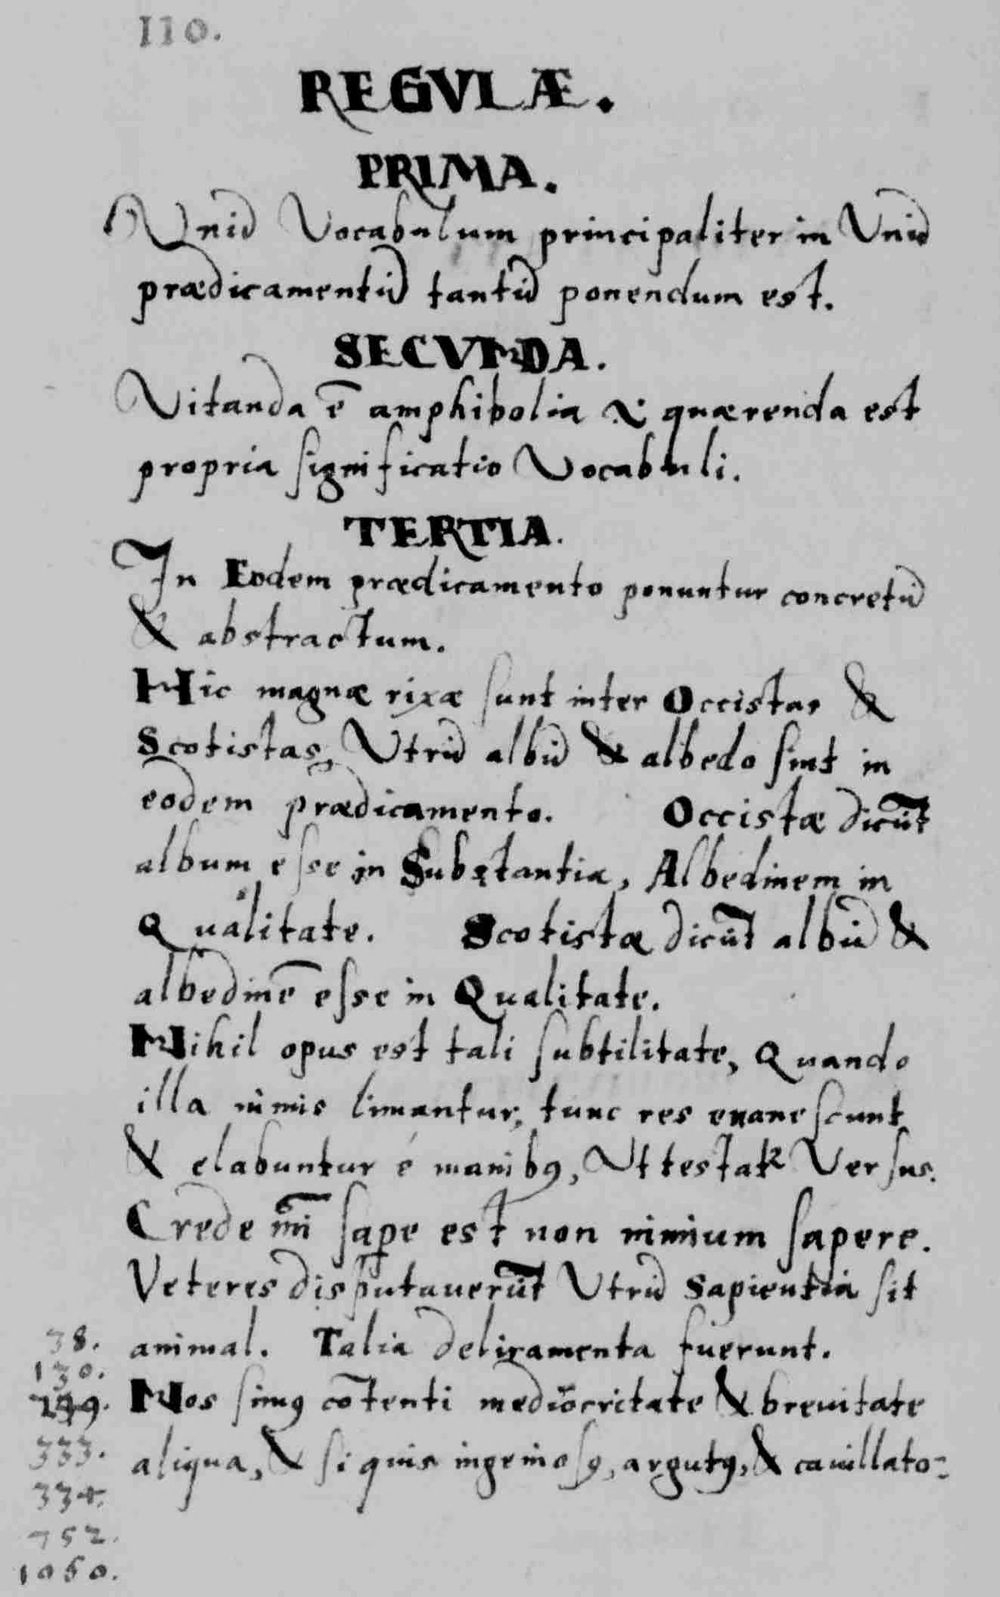 110.
REGVLÆ.
PRIMA.
Vnũ Vocabulum principaliter in Vnũ
prædicamentũ tantũ ponendum est.
SECVNDA.
Vitanda ē amphibolia & quærenda est
propria significatio Vocabuli.
TERTIA.
In Eodem prædicamento ponuntur concretũ
& abstractum.
Hic magnæ rixæ sunt inter Occistas &
Scotistas, Vtrũ albũ & albedo sint in
eodem prædicamento. Occistæ dicũt
album esse in Substantia, Albedinem in
Qualitate. Scotistæ dicũt albũ &
albedinē esse in Qualitate.
Nihil opus est tali subtilitate, Quando
illa nimis limantur, tunc res euanescunt
& elabuntur é manibꝰ, Vt testatꝛ Versus.
Crede m̄i sapꝑe est non nimium sapere.
Veteres disputauerũt Vtrũ Sapientia sit
38. animal. Talia deliramenta fuerunt.
130.
249. Nos simꝰ cōtenti mediocritate & breuitate
333. aliqua, & si quis ingeniosꝰ, argutꝰ, & cauillato=
334.
752.
1050.